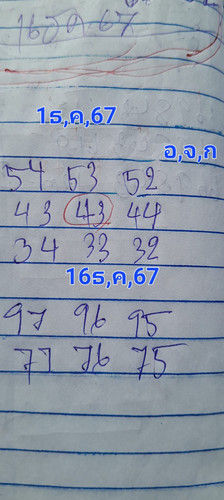 16ธ.ค.67
1ธ,ค,67
อ,จ,ก
54 53 52
43 43 44
34 33 32
16ธ,ค,67
97 96 95
77 76 75